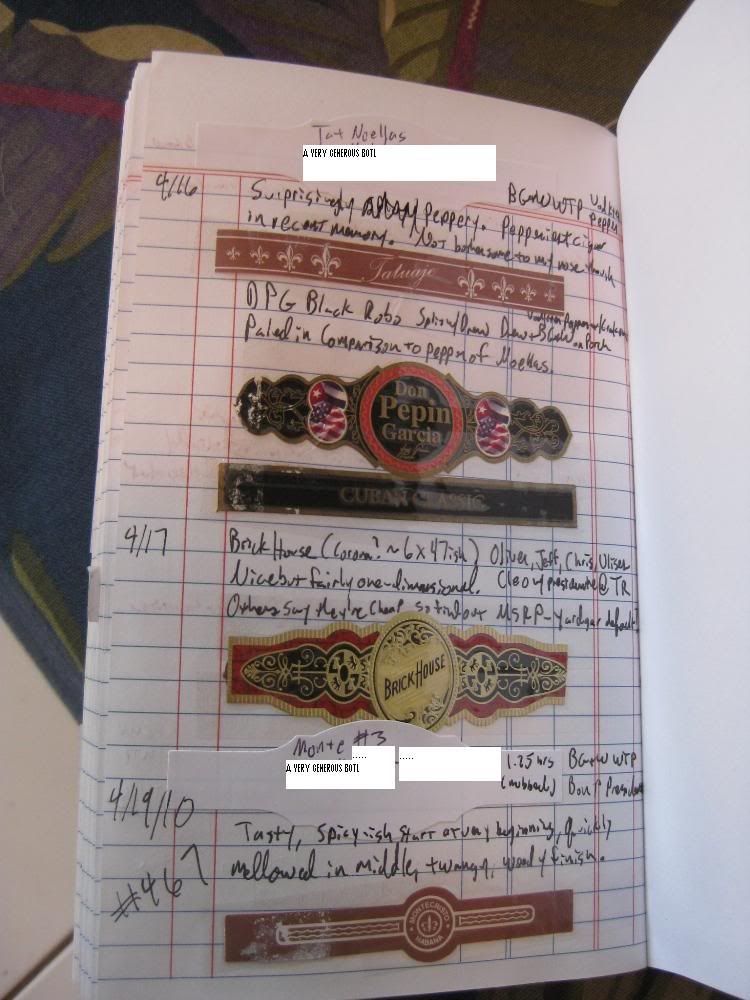 Tat Noellas
A VERY GENEROUS BOTL
4/16
Surprisingly peppery. Pepperiest cigar
BG+W WTP
in recent memory. Not bothersome to my nose though
Tatuaje
DPG Black Robo
Paled in comparison to pepper of Noellas.
Don
Pepin
Garcia
CUBAN CLASSIC
4/17
Brick House (corona? ~6x47ish) Oliver, Jeff, Chris, Uliser
Nice but fairly one-dimensional. Cleo y presidente @ TR
Others say they're cheap so find out MSRP-
BRICK HOUSE
Monte #3
A VERY GENEROUS BOTL
1.25 hrs BG+W WTP
(nubbed)
4/19/10
Tasty, spicy-ish start at very beginning, quickly
mellowed in middle, twangy, woody finish.
#467
MONTECRISTO
HABANA